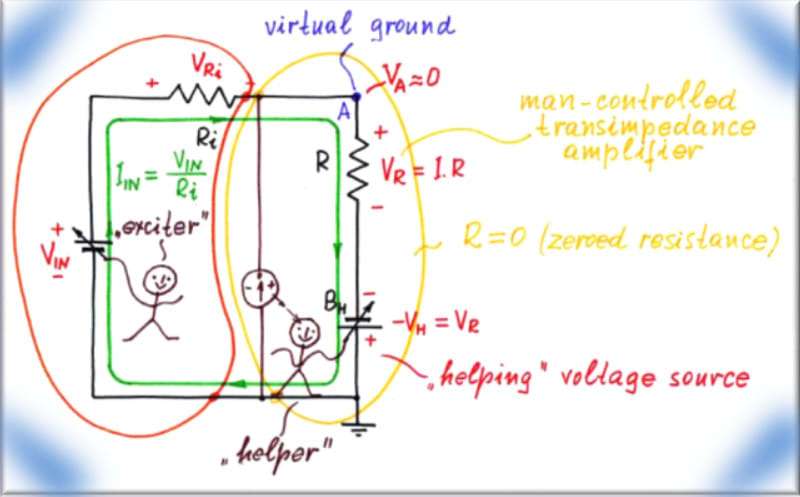 virtual ground
+ V_Ri -
V_A ≈ 0
A
man-controlled
transimpedance
amplifier
R_i
+
R
V_R = I.R
-
I_IN = V_IN / R_i
„exciter"
+
V_IN
-
R = 0 (zeroed resistance)
- +
B_H
-
-V_H = V_R
+
„helping" voltage source
„helper"